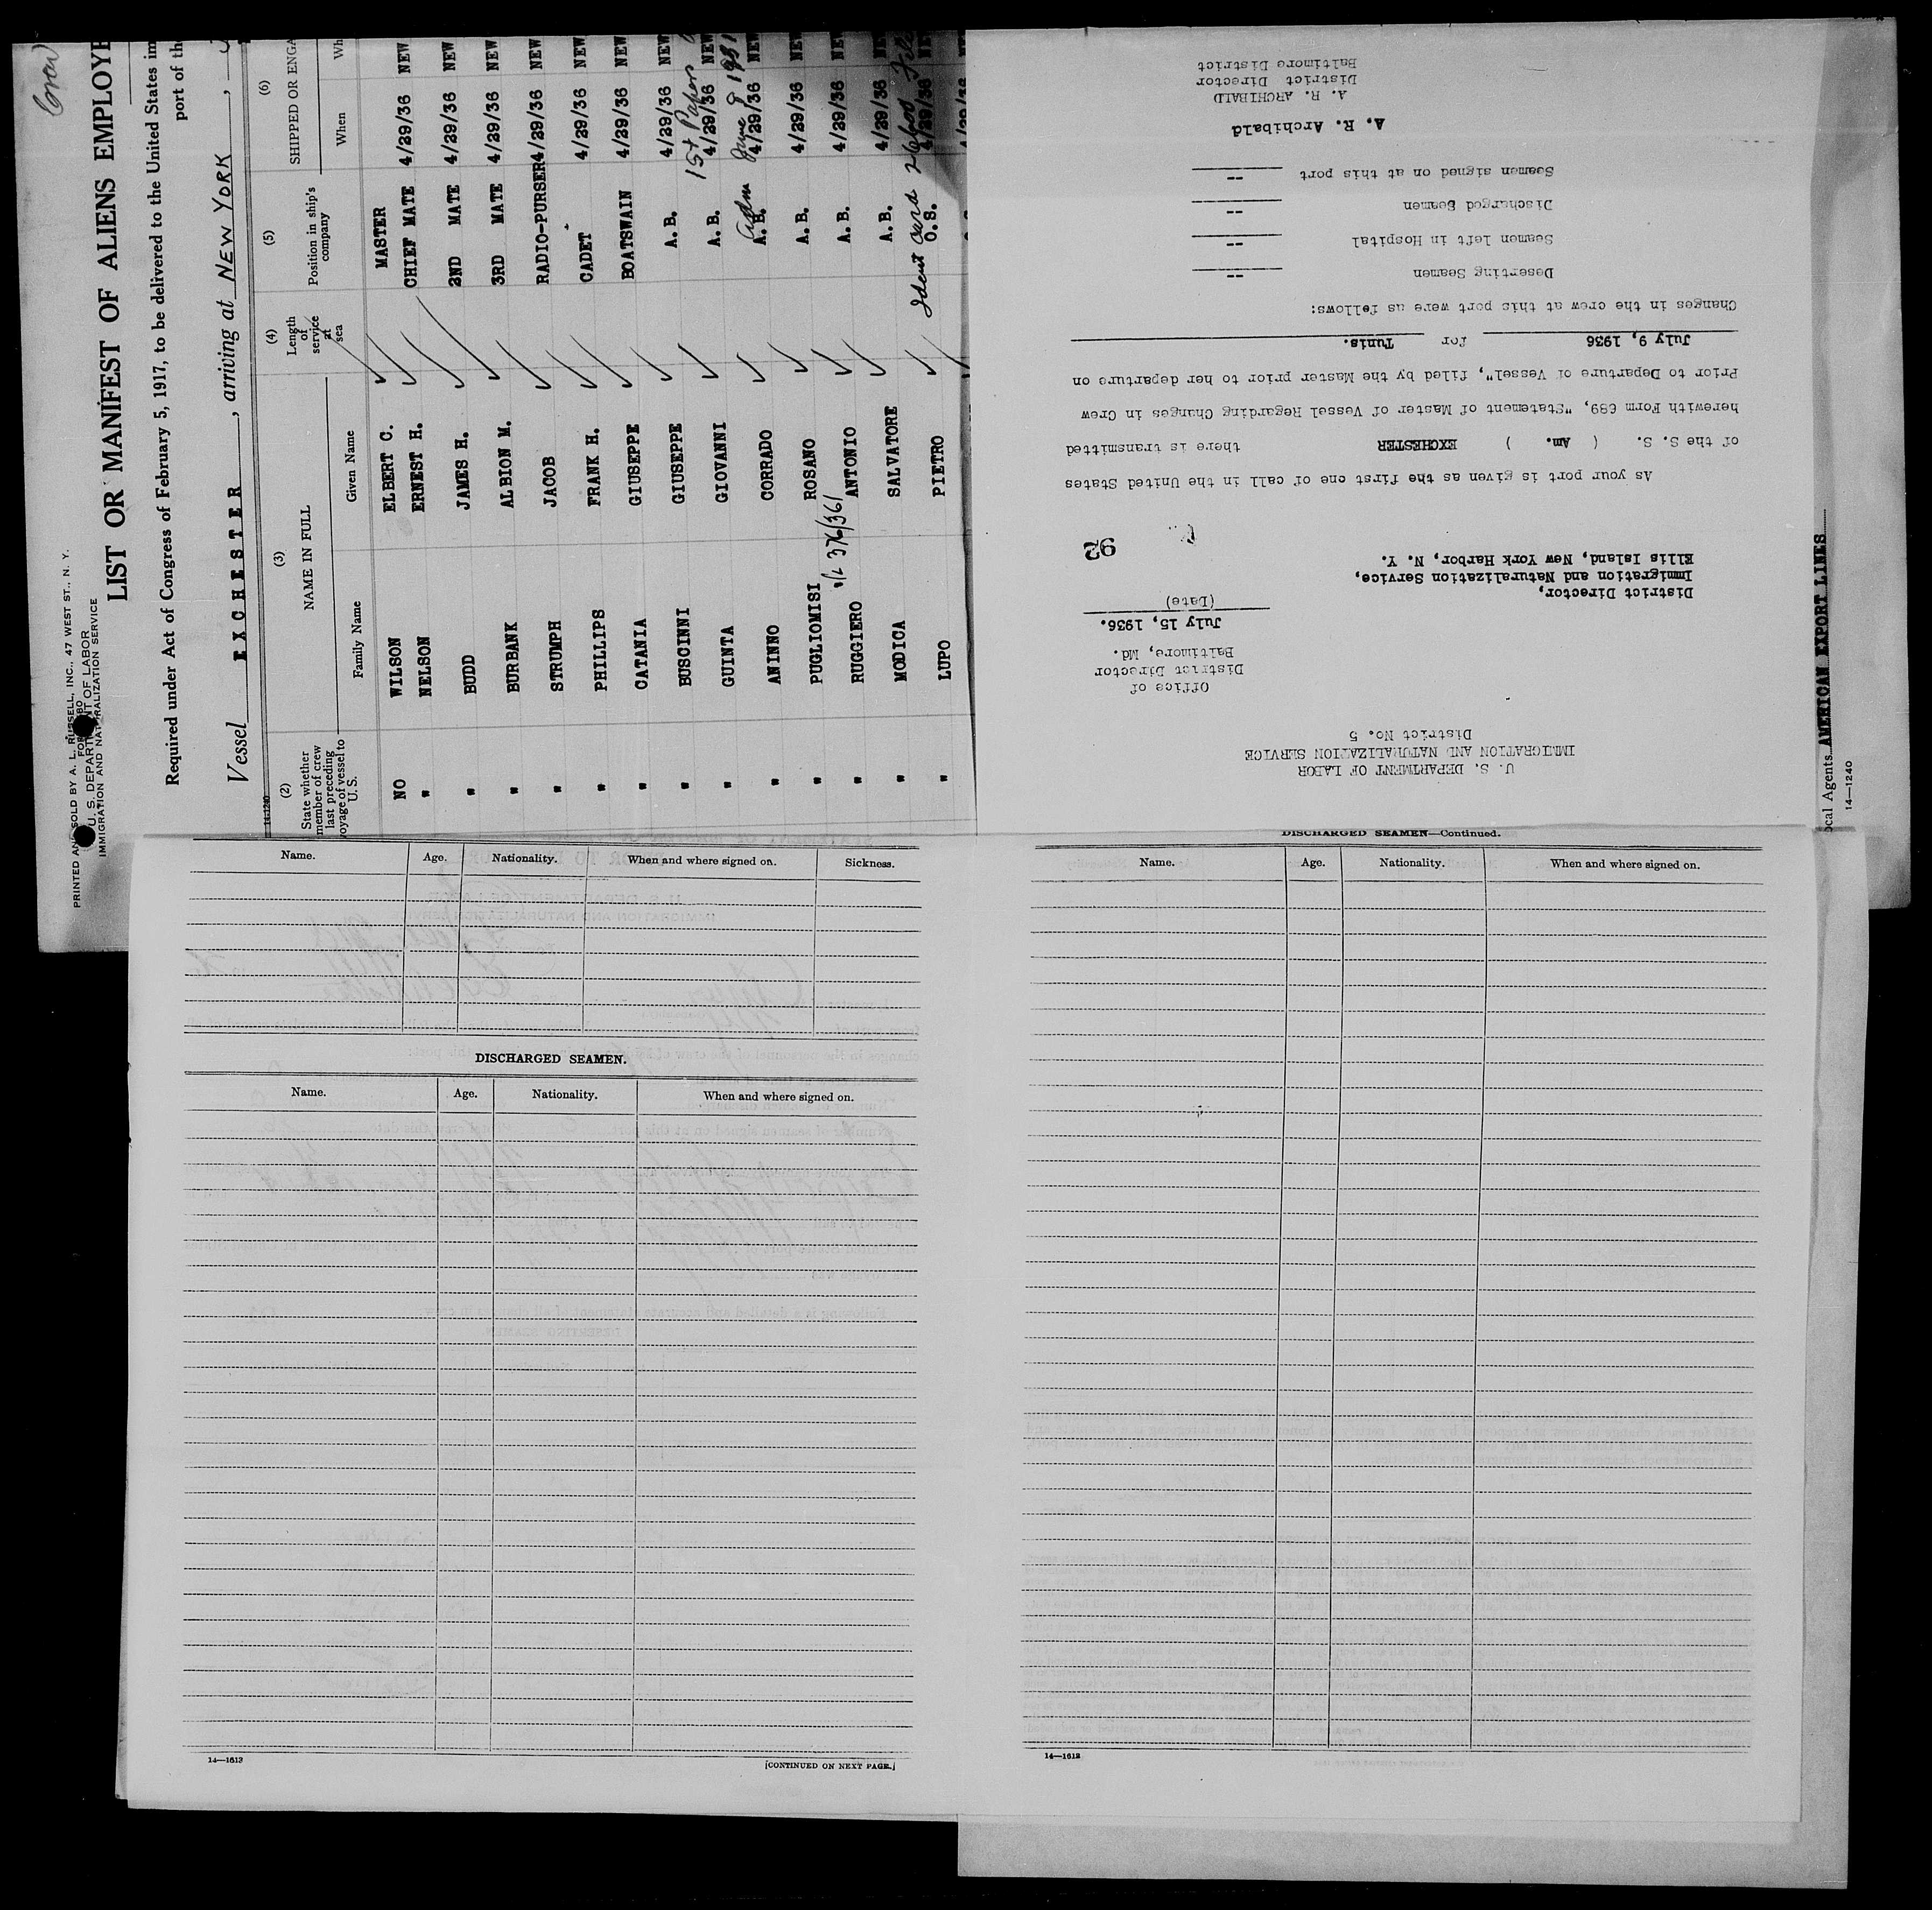 Crew
PRINTED AND SOLD BY A. L. RUSSELL, INC., 47 WEST ST., N. Y.
U. S. DEPARTMENT OF LABOR
IMMIGRATION AND NATURALIZATION SERVICE
LIST OR MANIFEST OF ALIENS EMPLOYE
Required under Act of Congress of February 5, 1917, to be delivered to the United States im
port of th
Vessel EXCHESTER, arriving at NEW YORK,
14-1240
(2) (3) (4) (5) (6)
State whether member of crew last preceding voyage of vessel to U. S. NAME IN FULL Length of service at sea Position in ship's company SHIPPED OR ENGA
Family Name Given Name When Wh
NO WILSON ELBERT C. MASTER
" NELSON ERNEST H. CHIEF MATE 4/29/36 NEW
" BUDD JAMES H. 2ND MATE 4/29/36 NEW
" BURBANK ALBION M. 3RD MATE 4/29/36 NEW
" STRUMPH JACOB RADIO-PURSER 4/29/36 NEW
" PHILLIPS FRANK H. CADET 4/29/36 NEW
" CATANIA GIUSEPPE BOATSWAIN 4/29/36 NEW
" BUSCINNI GIUSEPPE A.B. 4/29/36 NEW
1st Papers
" GUINTA GIOVANNI A.B. 4/29/36 NEW
Adm June 9 1931
" ANINO CORRADO A.B. 4/29/36 NEW
" PUGLIOMISI ROSANO A.B. 4/29/36 NEW
376/361
" RUGGIERO ANTONIO A.B. 4/29/36 NEW
" MODICA SALVATORE A.B. 4/29/36 NEW
Ident Card 26600
" LUPO PIETRO O.S. 4/29/36 NEW
U. S. DEPARTMENT OF LABOR
IMMIGRATION AND NATURALIZATION SERVICE
District No. 5
Office of
District Director
Baltimore, Md.
July 15, 1936.
(Date)
District Director,
Immigration and Naturalization Service,
Ellis Island, New York Harbor, N. Y.
92
As your port is given as the first one of call in the United States
of the S. S. ( Am. ) EXCHESTER there is transmitted
herewith Form 689, "Statement of Master of Vessel Regarding Changes in Crew
Prior to Departure of Vessel", filed by the Master prior to her departure on
July 9, 1936 for Tunis.
Changes in the crew at this port were as follows:
Deserting Seamen --
Seamen left in Hospital --
Discharged Seamen --
Seamen signed on at this port --
A. R. Archibald
A. R. ARCHIBALD
District Director
Baltimore District
ocal Agents AMERICAN EXPORT LINES
14—1240
Name. Age. Nationality. When and where signed on. Sickness.
DISCHARGED SEAMEN.
Name. Age. Nationality. When and where signed on.
14—1613
[CONTINUED ON NEXT PAGE.]
DISCHARGED SEAMEN—Continued.
Name. Age. Nationality. When and where signed on.
14—1613